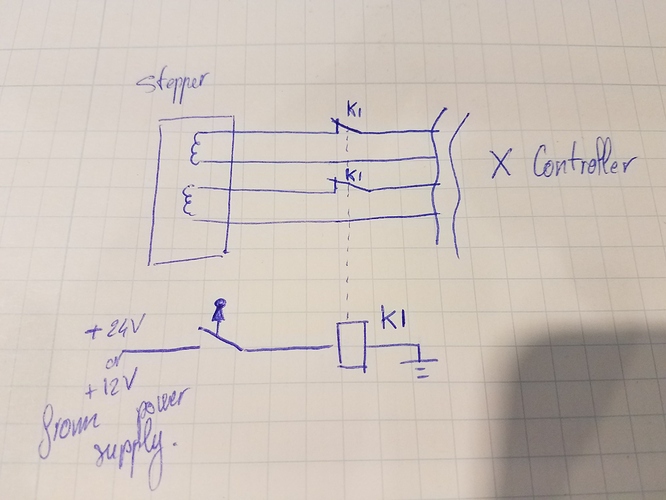 Stepper
K1
K1
X Controller
K1
+24V
or
+12V
from power
supply.